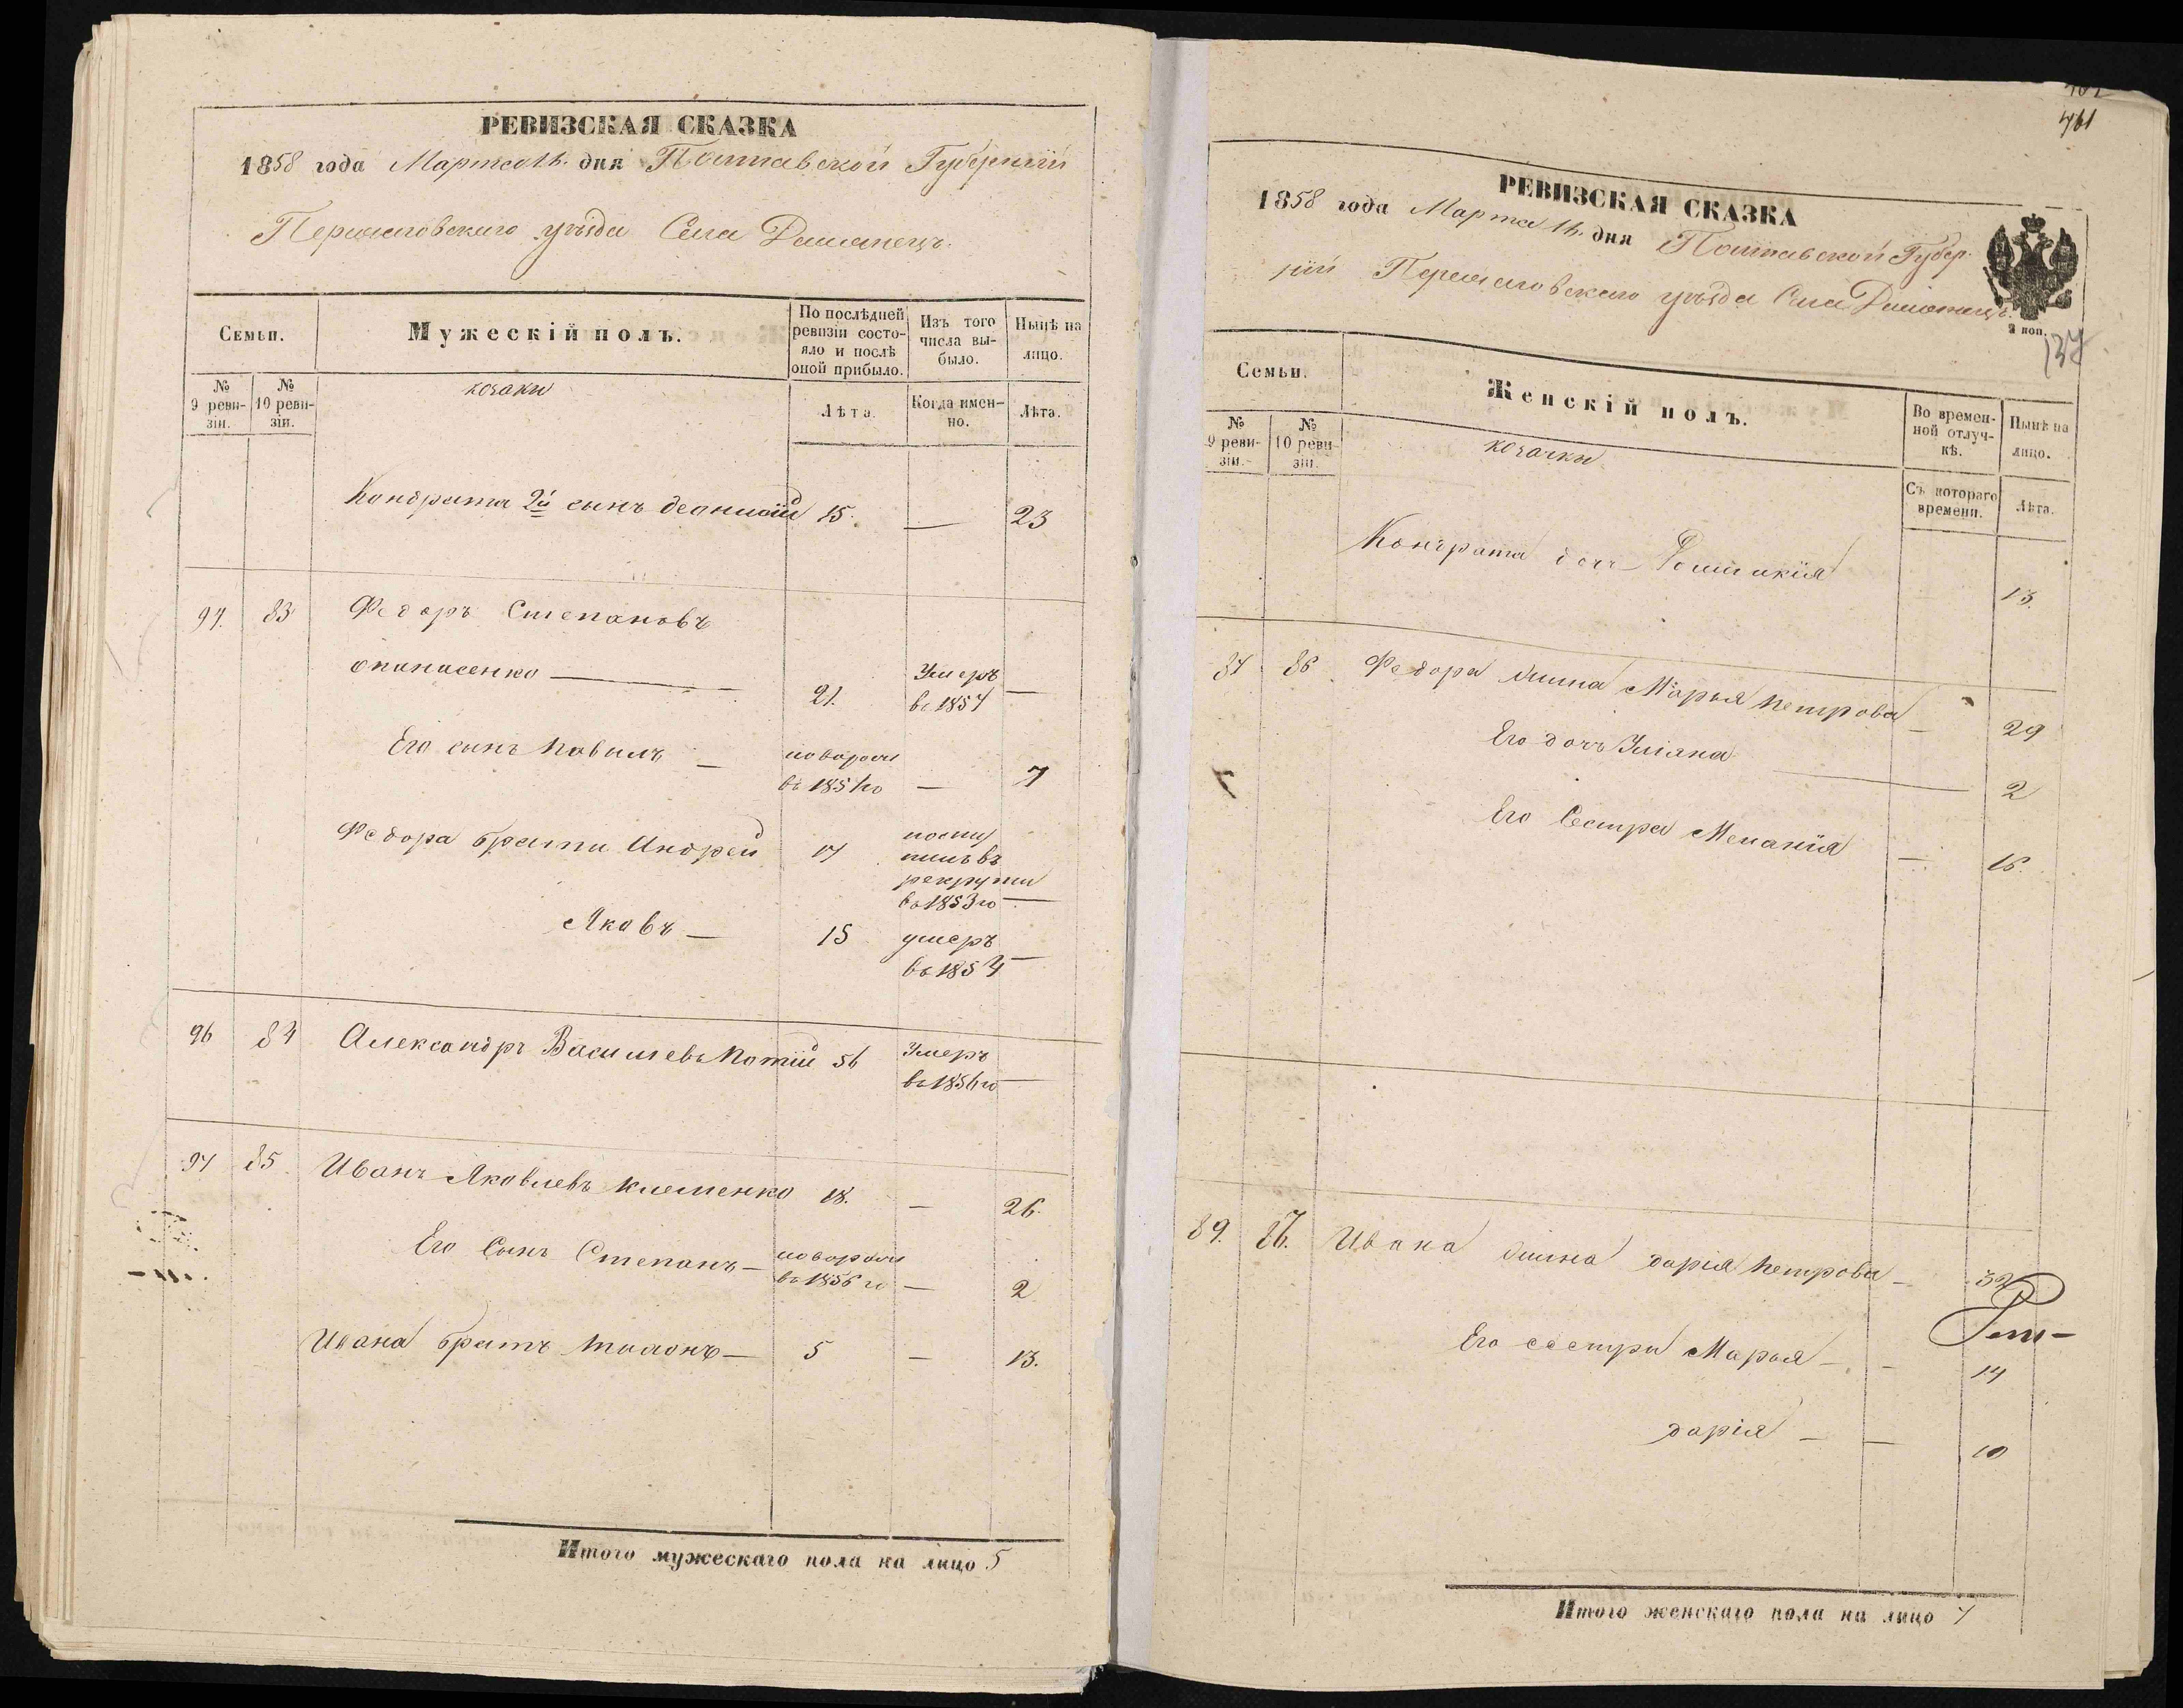 РЕВИЗСКАЯ СКАЗКА
1858 года Марта 16. дня Полтавской Губерніи
Переяславского уѣзда Села Демянецъ.
Семьи.
Мужескій полъ.
По послѣдней ревизіи состояло и послѣ оной прибыло.
Изъ того числа выбыло.
Нынѣ на лицо.
№ 9 ревизіи.
№ 10 ревизіи.
козаки
Лѣта.
Когда именно.
Лѣта.
Кондрата 2й сынъ деонисій 15. — 23
94. 83 Федоръ Степановъ
опанасенко — 21. Умеръ въ 1857 —
Его сынъ Павилъ — новорож въ 1851го — 7
Федора брати Андрей 17 поступилъ въ рекрути въ 1853го —
Яковъ — 15 умеръ въ 1854 —
96 84 Александръ Васильевъ Котій 56 Умеръ въ 1856го —
97 85 Иванъ Яковлевъ клеменко 18. — 26.
Его Сынъ Степанъ — новорож въ 1856го — 2
Ивана братъ тимонъ — 5 — 13.
Итого мужескаго пола на лицо 5
461
РЕВИЗСКАЯ СКАЗКА
1858 года Марта 16. дня Полтавской Губер.
ніи Переяславского уѣзда Села Демянецъ.
2 коп.
137
Семьи.
Женскій полъ.
Во временной отлучкѣ.
Нынѣ на лицо.
№ 9 ревизіи.
№ 10 ревизіи.
козачки
Съ котораго времени.
Лѣта.
Кондрата доч 13.
87 86 Федора жина Марья петрова — 29
Его дочъ Уліяна — 2
Его Сестра Меланія — 16.
89. 87. Ивана жина дарія петрова — 32
Его сестри Марья — — 14
дарія — — 10
Итого женскаго пола на лицо 7